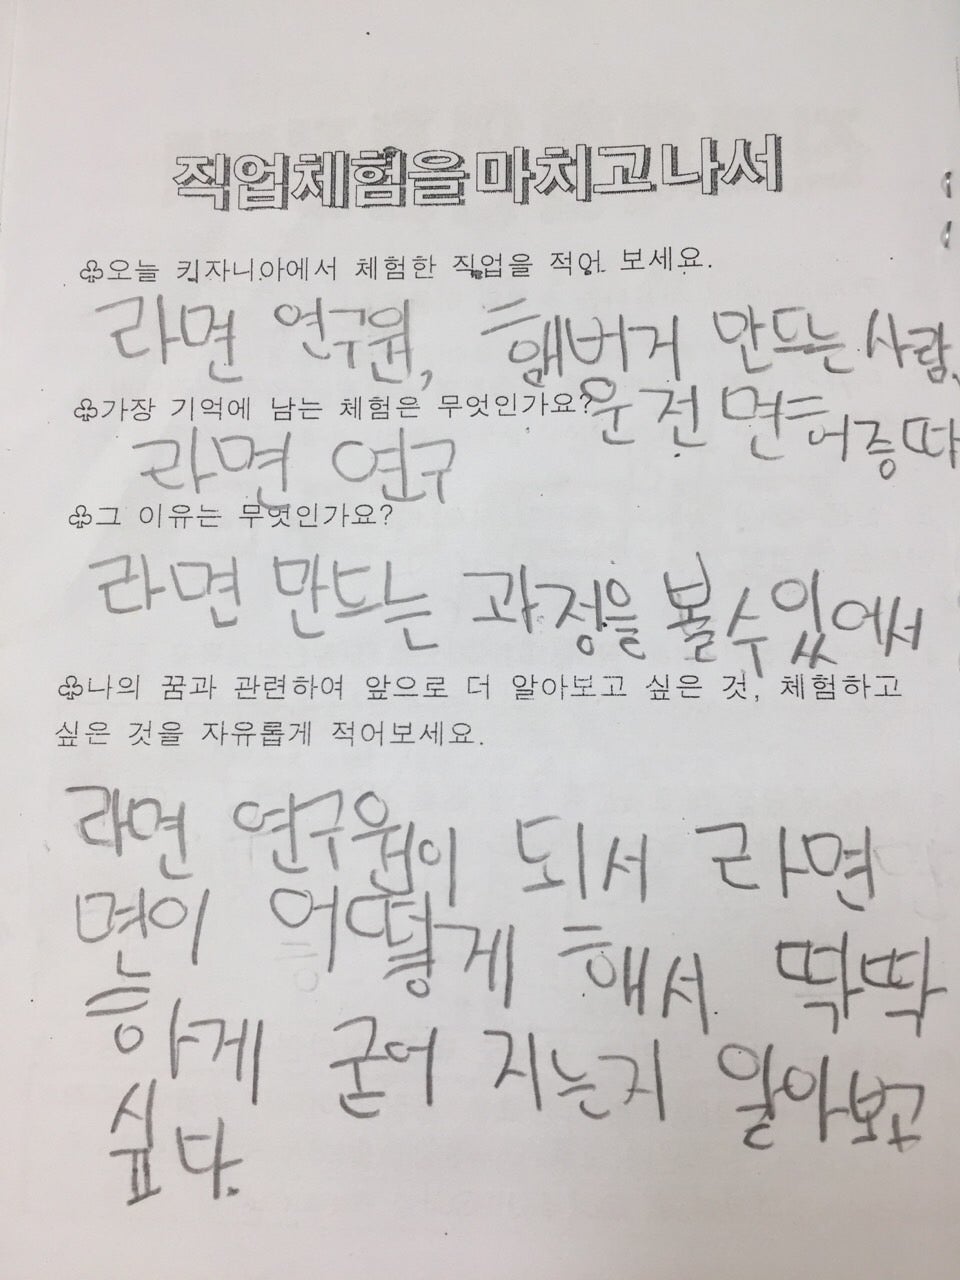 직업체험을 마치고 나서
♧오늘 키자니아에서 체험한 직업을 적어 보세요.
라면 연구원, 햄버거 만드는 사람,
운전면허증따
♧가장 기억에 남는 체험은 무엇인가요?
라면 연구
♧그 이유는 무엇인가요?
라면 만드는 과정을 볼수있어서
♧나의 꿈과 관련하여 앞으로 더 알아보고 싶은 것, 체험하고
싶은 것을 자유롭게 적어보세요.
라면 연구원이 되서 라면
면이 어떻게 해서 딱딱
하게 굳어 지는지 알아보고
싶다.